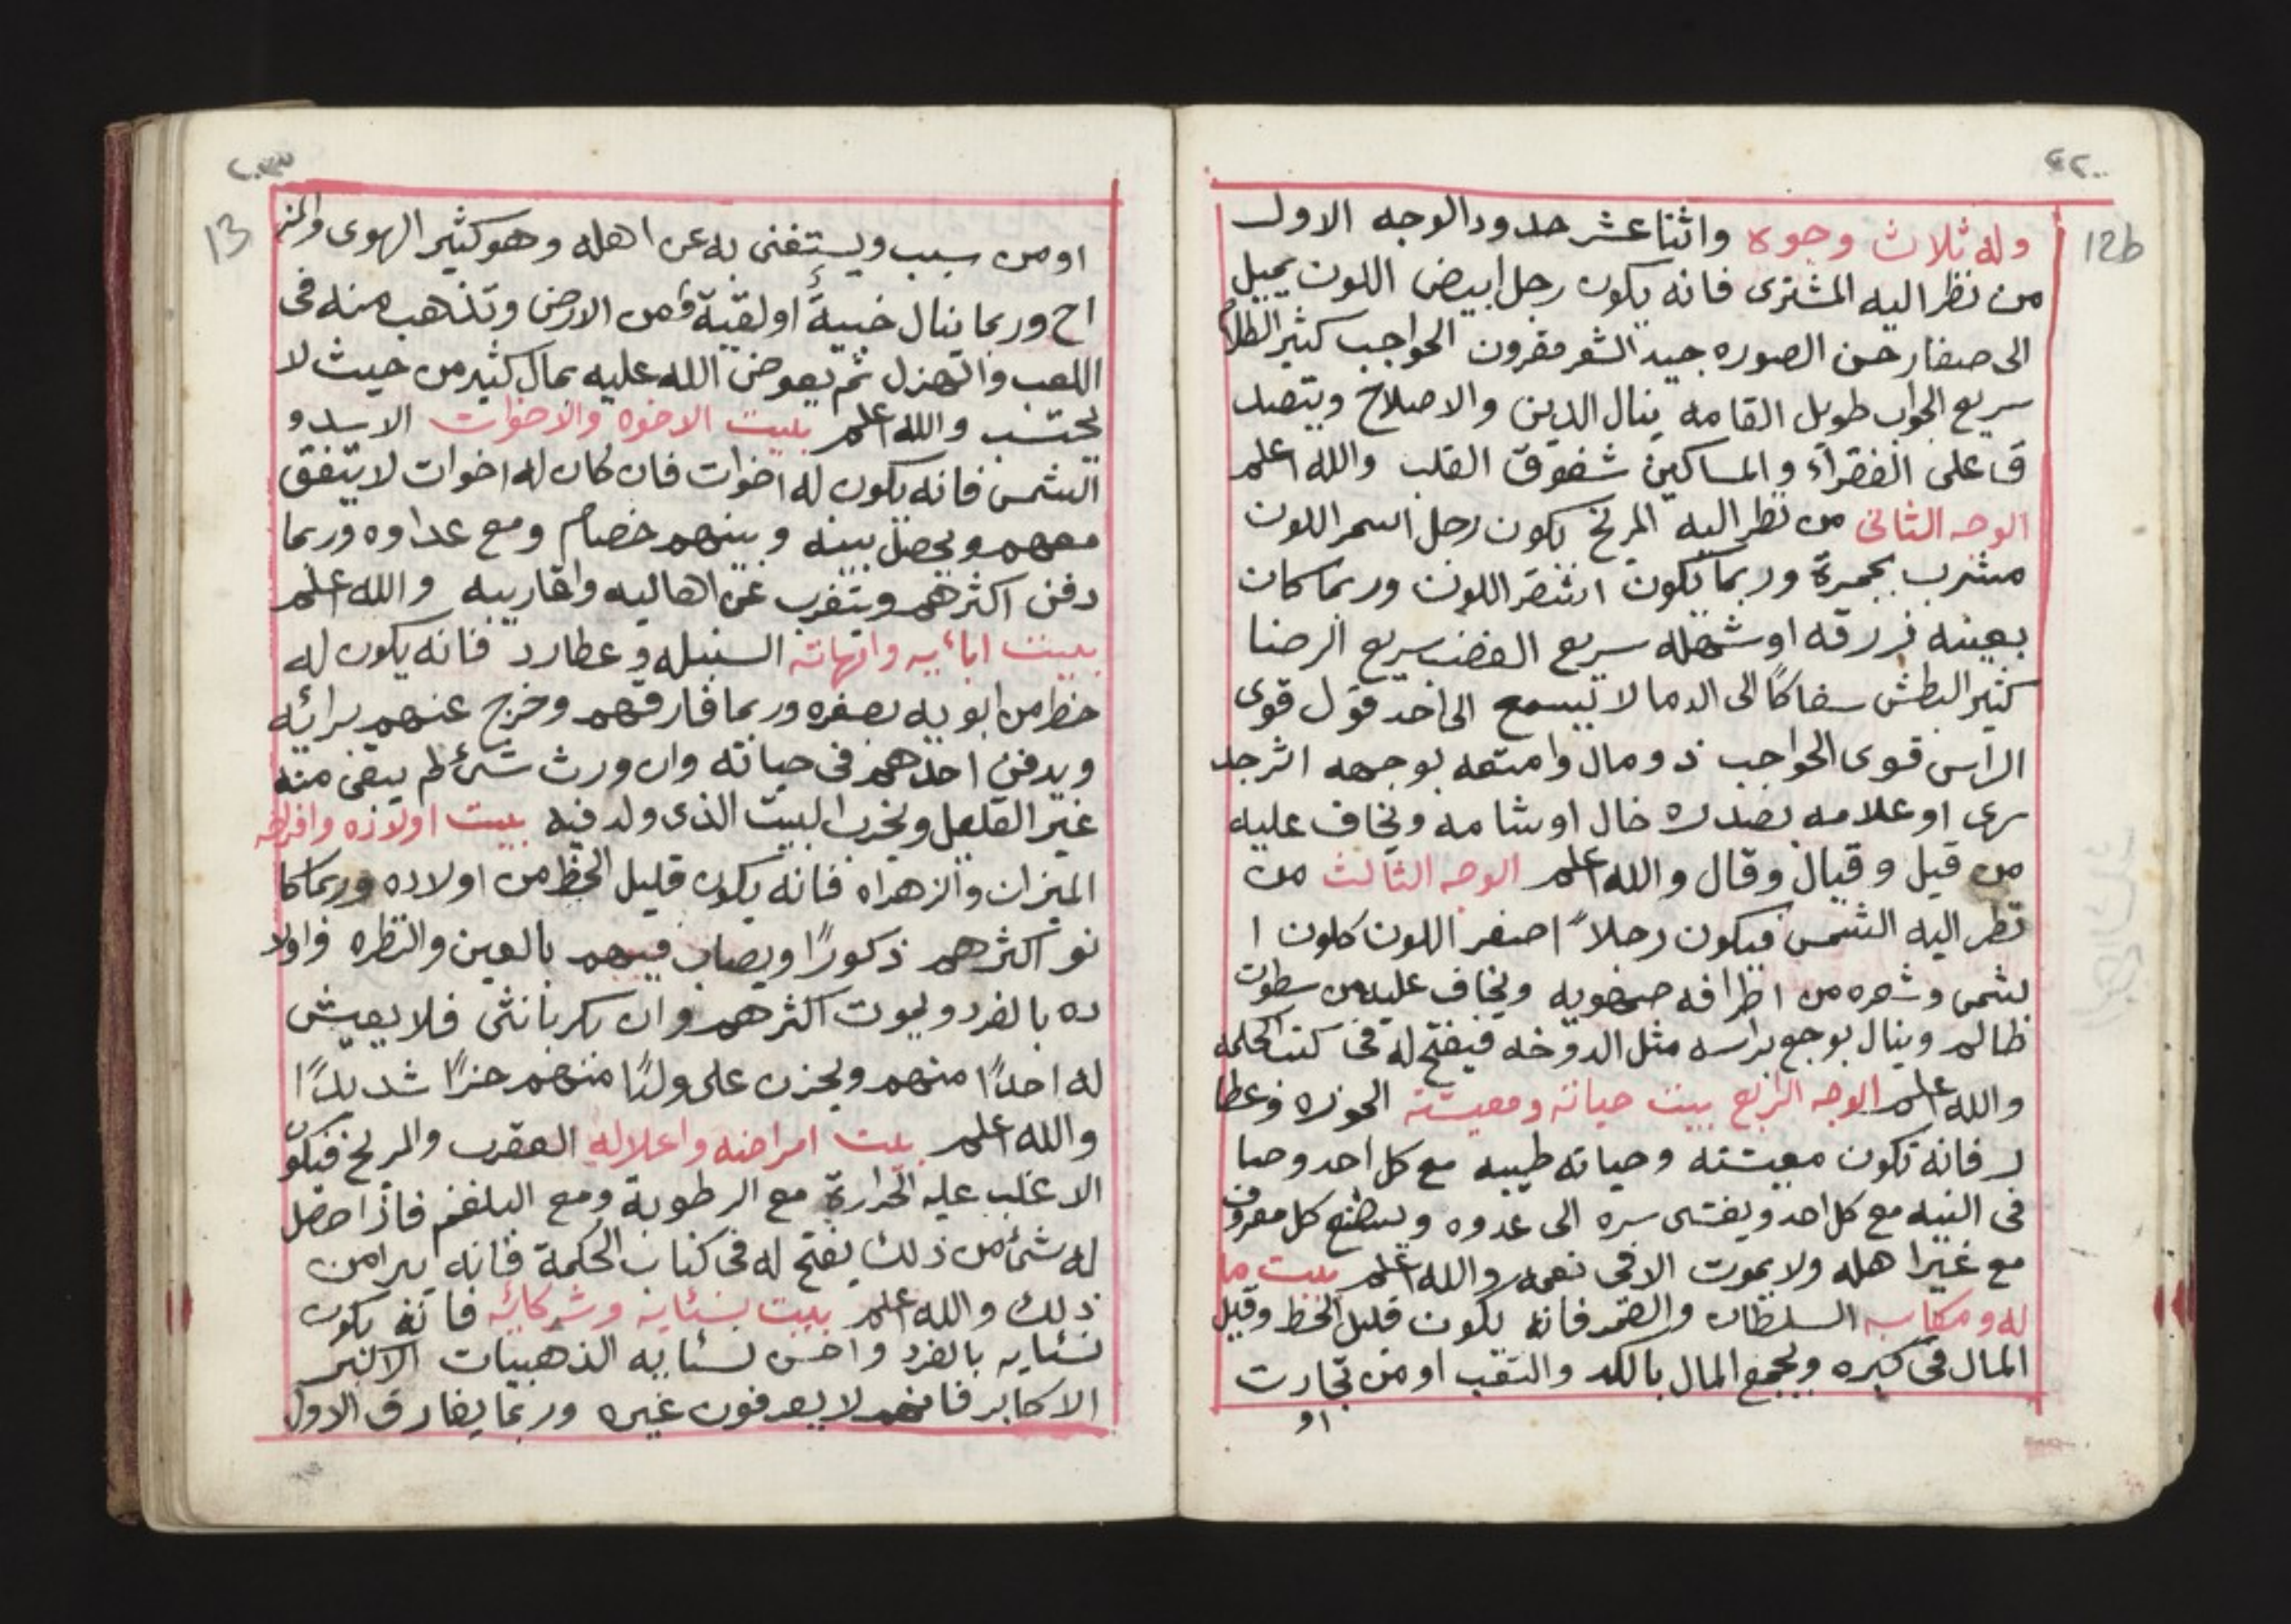 ٢٢
12b
وله ثلاث وجوه واثنا عشر حدود الوجه الاول
من نظر اليه المشترى فانه يكون رجل ابيض اللون يميل
الى صفار حسن الصوره جيد الشعر مقرون الحواجب كثير الكلام
سريع الجواب طويل القامه ينال الدين والاصلاح ويتصد
ق على الفقرآء والمساكين شفوق القلب والله اعلم
الوجه الثانى من نظر اليه المريخ يكون رجل اسمر اللون
مشرب بحمرة وربما يكون اشقر اللون وربما كان
بعينه زرقه او شهله سريع الغضب سريع الرضا
كثير البطش سفاكًا الى الدما لا يسمع الى احد قول قوى
الراس قوى الحواجب ذو مال وامتعه بوجهه اثر جد
رى او علامه بصدره خال او شامه ويخاف عليه
من قيل وقيال وقال والله اعلم الوجه الثالث من
نظر اليه الشمس فيكون رجلاً اصفر اللون كلون ا
لشمس وشعره من اطرافه ويخاف عليه من سطوت
ظالم وينال بوجع براسه مثل الدوخه فيفتح له فى كتب الحكمه
والله اعلم الوجه الرابع بيت حياته ومعيشته الجوزه وعطا
رد فانه تكون معيشته وحياته طيبه مع كل احد وصا
فى النيه مع كل احد ويفشى سره الى عدوه ويصطنع كل معروف
مع غير اهله ولا يموت الا فى نعمه والله اعلم بيت ما
له ومكاسبه السلطان والقمر فانه يكون قليل الحظ وقيل
المال فى كبره ويجمع المال بالكد والتعب او من تجارت
او
٢٣
13
او من سبب ويستغنى به عن اهله وهو كثير الهوى والمز
اح وربما ينال خبيةً او لقية من الارض وتذهب منه فى
اللعب والهزل ثم يعوض الله عليه بمال كثير من حيث لا
يحتسب والله اعلم بييت الاخوه والاخوات الاسد و
الشمس فانه يكون له اخوات فان كان له اخوات لا يتفق
معهم ويحصل بينه وبينهم خصام ومع عداوه وربما
دفن اكثرهم ويتغرب عن اهاليه واقاربيه والله اعلم
بييت ابائيه وامهاته السنبله و عطارد فانه يكون له
حظ من ابويه بصغره وربما فارقهم وخرج عنهم برائه
ويدفن احدهم فى حياته وان ورث شئ لم يبقى منه
غير القليل ويخرب البيت الذى ولد فيه بييت اولاده وافراحه
الميزان والزهراه فانه يكون قليل الحظ من اولاده وربما كا
نو اكثرهم ذكورًا ويصاب فيهم بالعين والنظره واولا
ده بالفرد ويموت اكثرهم وان بكر بانثى فلا يعيش
له احدًا منهم ويحزن على ولدًا منهم حزنًا شديدًا
والله اعلم بيت امراضه واعلاله العقرب والمريخ فيكون
الاغلب عليه الحرارة مع الرطوبة ومع البلغم فاذا حصل
له شئ من ذلك يفتح له فى كتاب الحكمة فانه يبرا من
ذلك والله اعلم بييت نسائيه وشركائه فانه يكون
نسائيه بالفرد واحسن نسائيه الذهبيات الاكبر
الاكابر فانهم لا يعرفون غيره وربما يفارق الاول